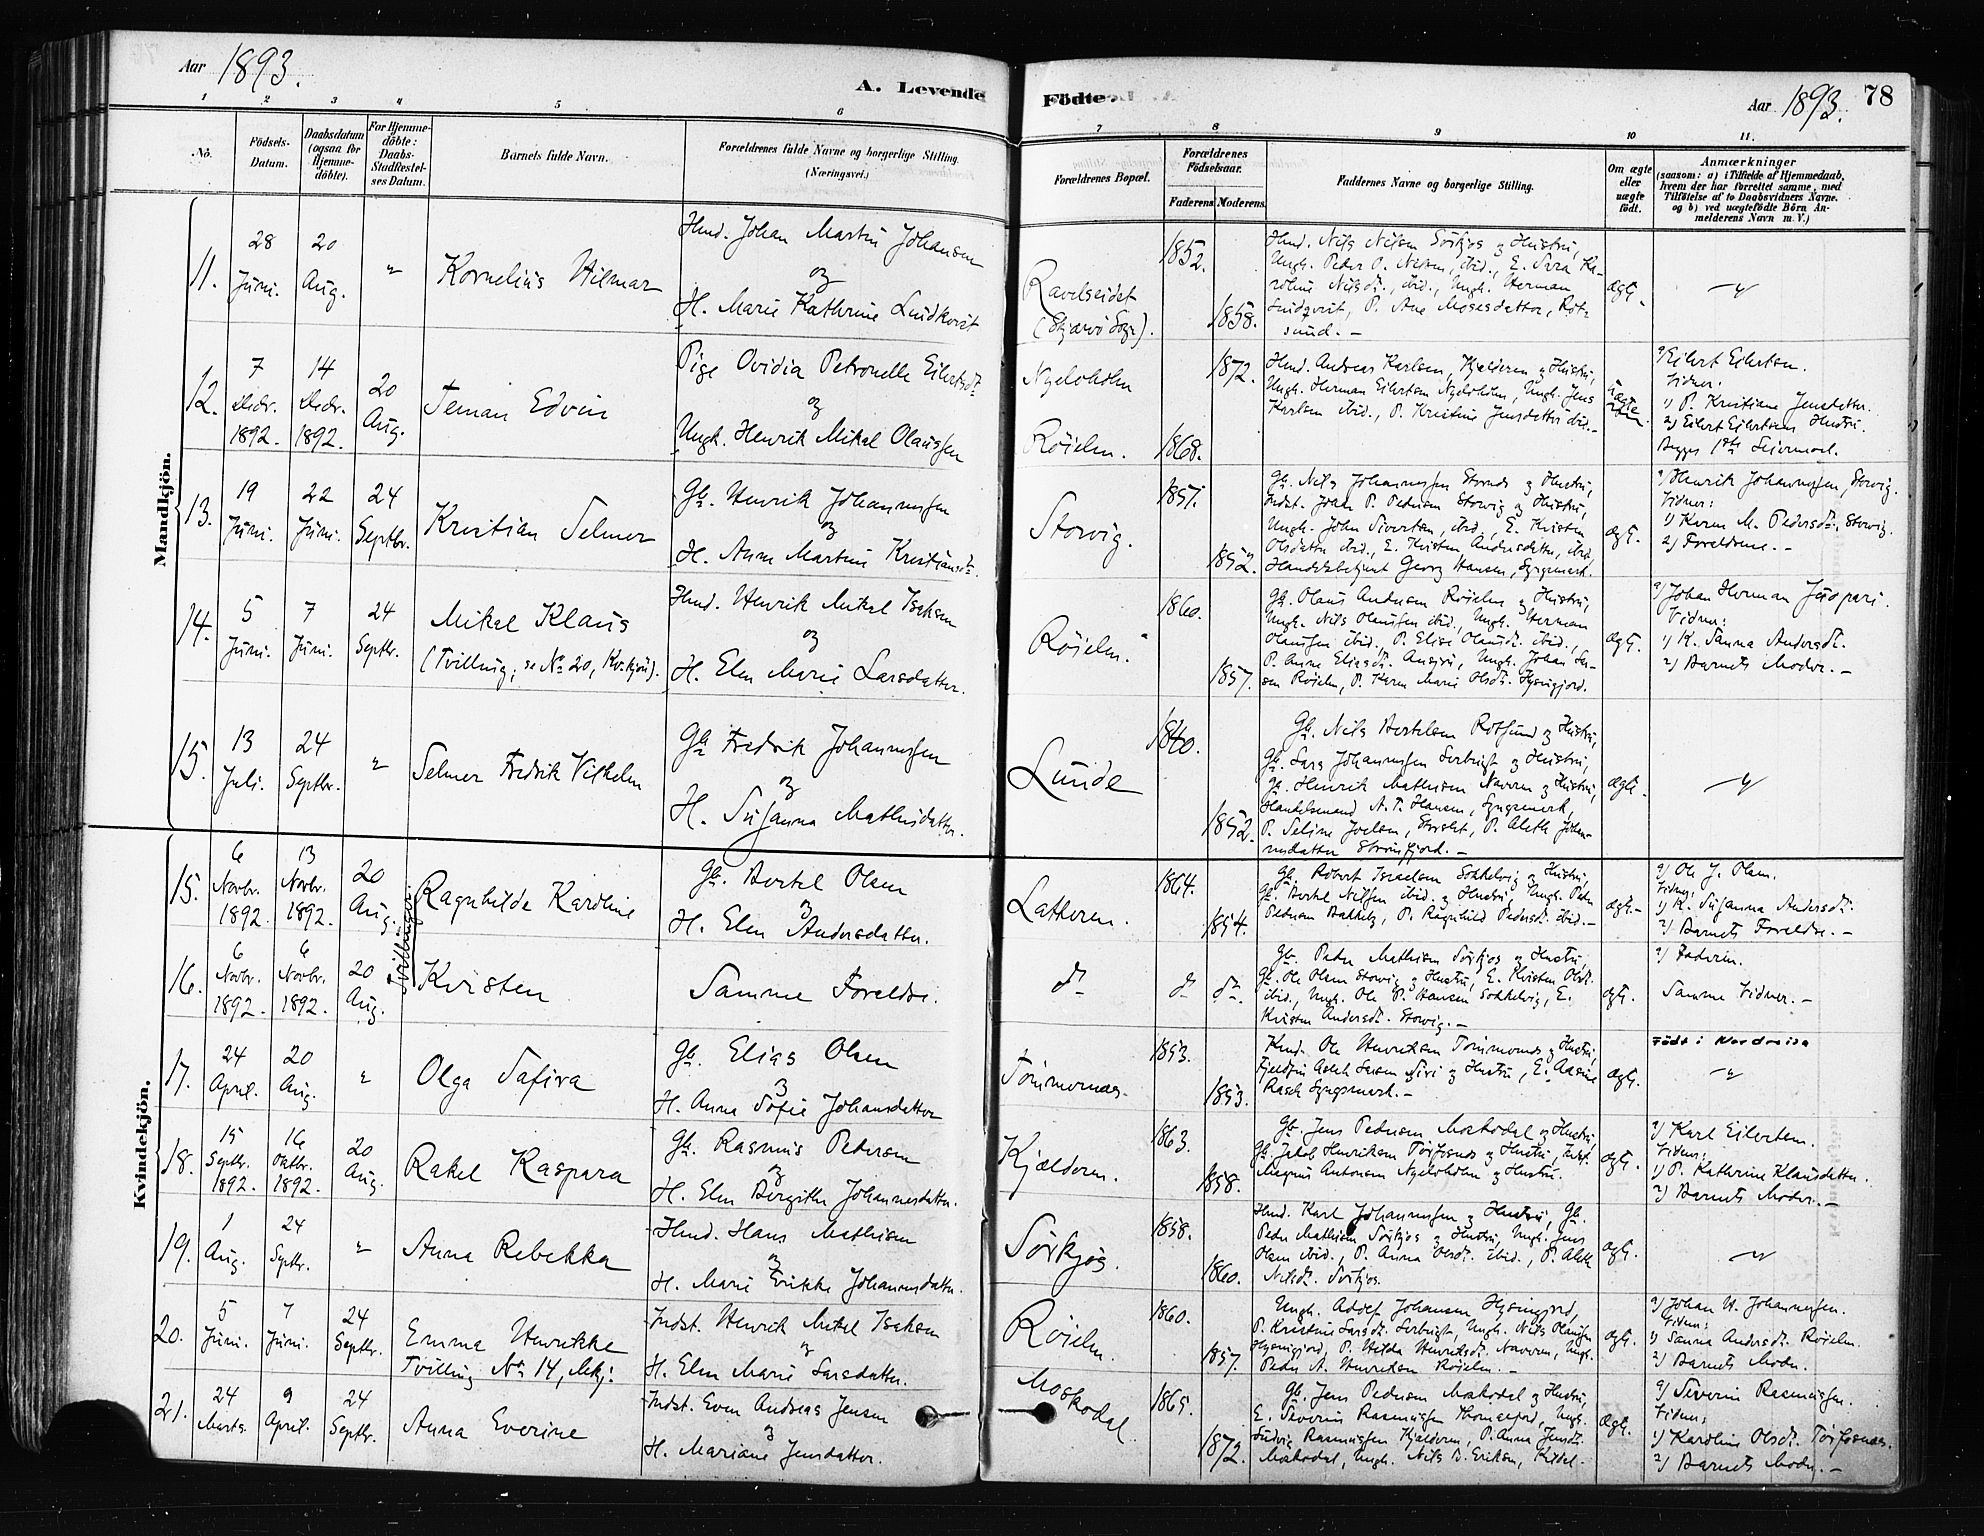 Aar 1893.
A. Levende
Födte.
Aar 1893. 78
1 2 3 4 5 6 7 8 9 10 11.
No.
Födsels-Datum.
Daabsdatum (ogsaa for Hjemme-döbte).
For Hjemme-döbte: Daabs-Stadfæstel-ses Datum.
Barnets fulde Navn.
Forældrenes fulde Navne og borgerlige Stilling.
(Næringsvei.)
Forældrenes Bopæl.
Forældrenes Födselsaar.
Faderens. Moderens.
Faddernes Navne og borgerlige Stilling.
Om ægte eller uægte födt.
Anmærkninger
(saasom: a) i Tilfælde af Hjemmedaab, hvem der har forrettet samme, med Tilföielse af to Daabsvidners Navne. og b) ved uægtefödte Börn An-melderens Navn m.V.)
Mandkjön.
11. 28 Juni. 20 Aug. " Kornelius Hilmar
Hmd. Johan Martin Johansen
og
H. Marie Kathrine Lindkvist
Ravelseidet
(Skjærvö Sogn).
1852. 1858.
Hmd. Nils Nilsen Sörkjos og Hustru,
Ungk. Peder P. Nilsen, ibid., E. Sara Ka-
roline Nilsdt., ibid., Ungk. Herman
Lindqvist, P. Ane Mosesdatter, Röt-
sund. –
ægt.
12. 7 Decbr. 1892. 14 Decbr. 1892. 20 Aug. Teman Edvin
Pige Ovidia Petronelle Eilertsdt.
og
Ungk. Henrik Mikal Olaussen
Nyeloholm
Röielen.
1872. 1868.
Hmd. Andreas Karlsen, Kjelderen og Hustru,
Ungk. Herman Eilertsen Nyeloholm, Ungk. Jens
Karlsen ibid., P. Kristine Jensdatter ibid. –
uægte
a) Eilert Eilertsen.
Vidner:
1) P. Kristiane Jensdatter.
2) Eilert Eilertsens Hustru.
Begges 1ste Leiermaal.
13. 19 Juni. 22 Juni. 24 Septbr. Kristian Selmer
Gb. Henrik Johannessen
og
H. Anne Martine Kristiansdt.
Storvig.
1857. 1852.
Gb. Nils Johannessen Stornes og Hustru,
Indst. Johan P. Pedersen Storvig og Hustru,
Ungk. John Sivertsen, ibid., E. Kristen
Olsdatter ibid., E. Kristen Andersdatter, ibid,
Handelsbetjent Georg Hansen, Lyngseidet.
ægt.
a) Henrik Johannessen, Storvig.
Vidner:
1) Karen M. Pedersdt., Storvig.
2) Foreldrene. –
14. 5 Juni. 7 Juni. 24 Septbr. Mikal Klaus
(Tvilling; se No 20, Kv.kjön).
Hmd. Henrik Mikal Isaksen
og
H. Elen Marie Larsdatter.
Röielen.
1860. 1857.
Gb. Olaus Andersen Röielen og Hustru,
Ungk. Nils Olaussen ibid., Ungk. Herman
Olaussen ibid., P. Elise Olausdt. ibid.,
P. Anne Eliasdt. , Ungk. Johan
Röielen, P. Karen Marie Olsdt. Hysingjord.
ægt.
a) Johan Herman .
Vidner:
1) K. Sanna Andersdt.
2) Barnets Moder. –
15. 13 Juli. 24 Septbr. " Selmer Fredrik Vilhelm
Gb. Fredrik Johannessen
og
H. Susanna Mathisdatter.
Lunde
1840. 1852.
Gb. Nils Bertelsen Rotsund og Hustru,
Gb. Lars Johannessen og Hustru,
Gb. Henrik Mathisen Naveren og Hustru,
Handelsmand A. T. Hansen, Lyngseidet,
P. Seline Joelsen, Storslet, P. Aleth Johan-
nesdatter Strömfjord. –
ægt.
Kvindekjön.
15. 6 Novbr. 1892. 13 Novbr. 1892. 20 Aug. Ragnhilde Karoline
Tvillinger
Gb. Bertel Olsen
og
H. Elen Andersdatter.
Latteren.
1864. 1854.
Gb. Robert Israelsen Sokkelvig og Hustru,
Gb. Bertel Nilsen ibid. og Hustru, Ungk. Peder
Pedersen Bakkeby, P. Ragnhild Pedersdt. ibid. –
ægt. –
a) Ole J. Olsen.
Vidner:
1) K. Susanna Andersdt.
2) Barnets Foreldre. –
16. 6 Novbr. 1892. 6 Novbr. 1892. 20 Aug. Kristen
Samme Foreldre.
do do do.
Gb. Peder Mathisen Sörkjos og Hustru,
Gb. Ole Olsen Storvig og Hustru, E. Kristen Olsdt.
ibid., Ungk. Ole P. Hansen Sokkelvig, E.
Kristen Andersdt. Storvig. –
ægt.
a) Faderen.
Samme Vidner. –
17. 24 April. 20 Aug. " Olga Safira
Gb. Elias Olsen
og
H. Anna Sofie Johansdatter
Tömmernæs.
1853. 1853.
Hmd. Ole Henriksen Tömmernes og Hustru,
og Hustru, E. Aasine
Rasch Lyngseidet. –
ægt.
Födt i Nordreisa
18. 15 Septbr. 1892. 16 Oktbr. 1892. 20 Aug. Rakel Kaspara
Gb. Rasmus Pedersen
og
H. Elen Bergithe Johannesdatter.
Kjælderen.
1863. 1858.
Gb. Jens Pedersen Moskodal og Hustru,
Gb. Jakob Henriksen Törfosnes og Hustru, Indst.
Magnus Antonsen Nyeloholm og Hustru.
ægt.
a) Karl Eilertsen.
Vidner:
1) P. Kathrine Klausdatter.
2) Barnets Moder. –
19. 1 Aug. 24 Septbr. " Anna Rebekka
Hmd. Hans Mathisen
og
H. Marie Erikke Johannesdatter.
Sörkjos.
1858. 1860.
Hmd. Karl Johannessen og Hustru, Gb.
Peder Mathisen Sörkjos og Hustru, Ungk. Jens
Olsen ibid., P. Anna Olsdt. ibid., P. Aleth
Nilsdt. Sörkjos.
ægt.
20. 5 Juni. 7 Juni. 24 Septbr. Emma Henrikke
Tvilling No 14, Mkj:
Indst. Henrik Mikal Isaksen
og
H. Elen Marie Larsdatter.
Röielen.
1860. 1857.
Ungk. Adolf Johansen Hysingjord,
P. Kristine Larsdt. , Ungk. Nils Olaussen
Hysingjord, P. Hilda Henriksdt. Naveren, Ungk.
Peder A. Henriksen Röielen. –
ægt.
a) Johan H. Johannessen.
Vidner:
1) Sanna Andersdt. Röielen.
2) Barnets Moder.
21. 24 Marts. 9 April. 24 Septbr. Anna Everine
Indst. Even Andreas Jensen
og
H. Mariane Jensdatter.
Moskodal.
1865. 1872.
Gb. Jens Pedersen Moskodal og Hustru,
E. Severin Rasmussen , Ungk.
Ludvig Rasmussen Kjælderen, P. Anna Jensdt.
Moskodal, Ungk. Nils B. Eriksen, Kildal. –
ægt.
a) Severin Rasmussen.
Vidner:
1) Karoline Olsdt. Törfosnes.
2) Barnets Moder. –